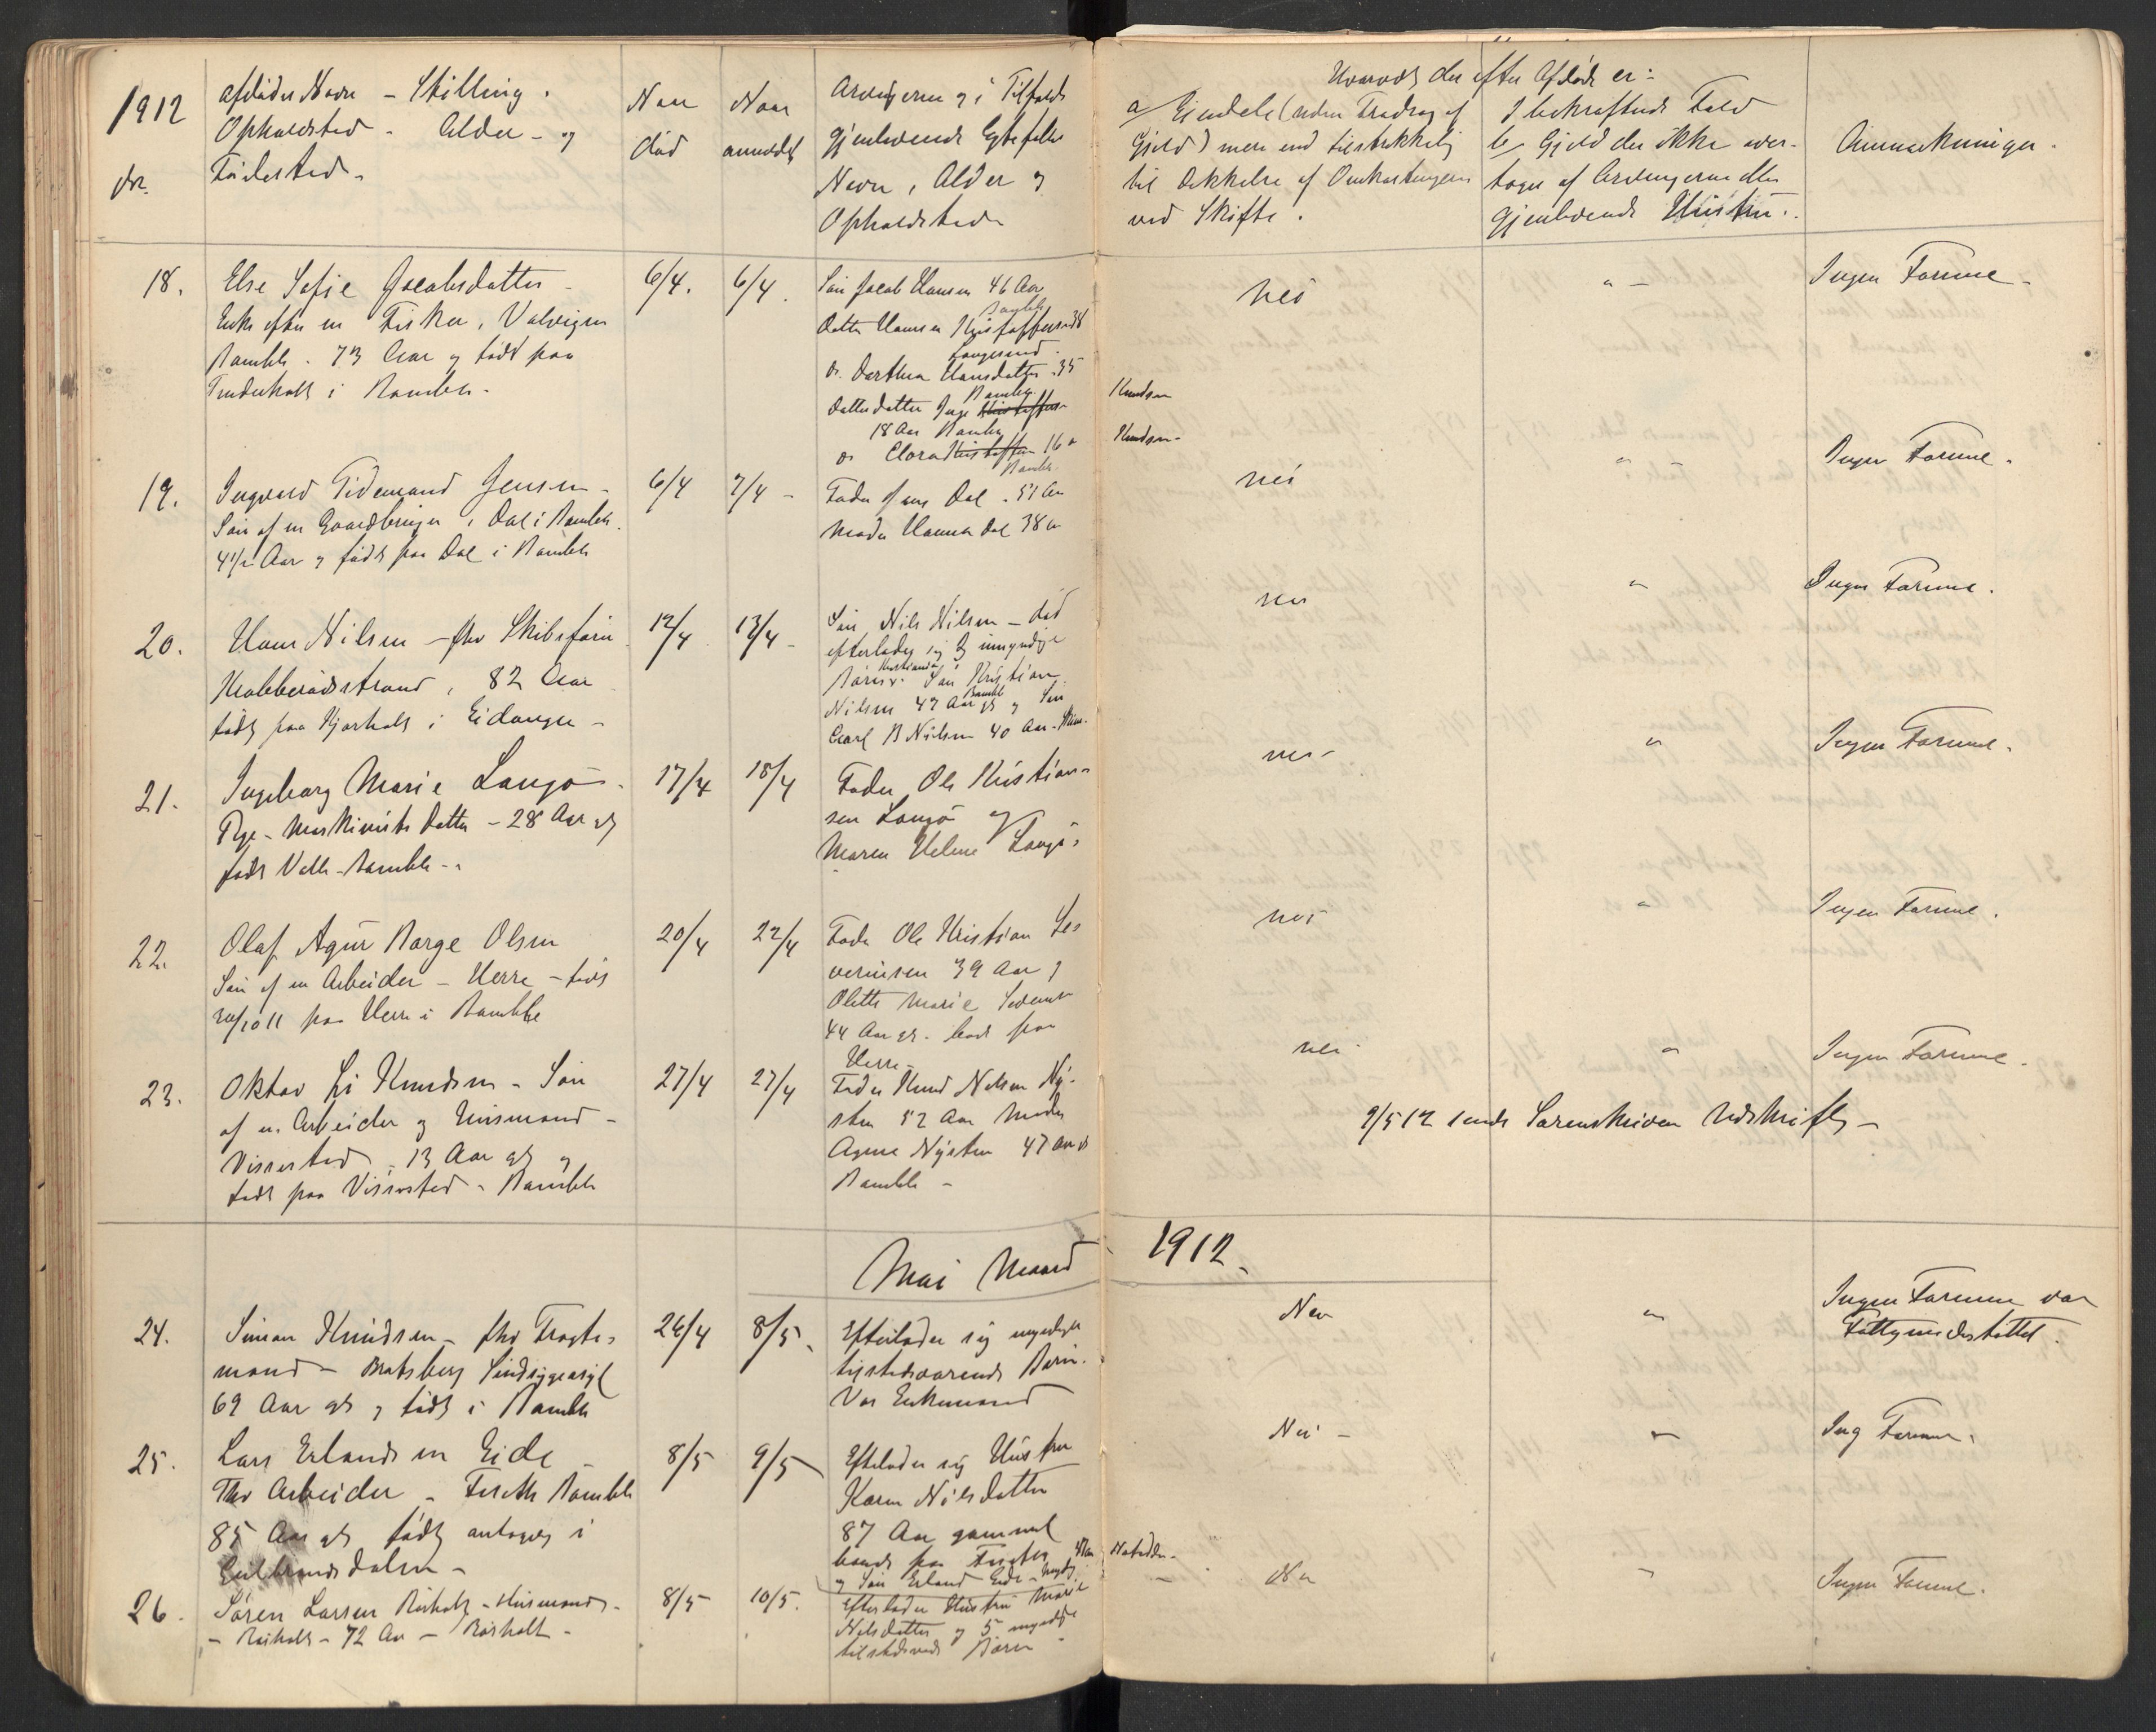 1912
Nr.
Afdødes Navn - Stilling.
Opholdsted - Alder - og
Fødested.
Naar
død
Naar
anmeldt
Arvingerne og i Tilfælde
gjenlevende Egtefælles
Navn, Alder og
Opholdsted
Hvorvidt der efter Afdøde er:
a/ Eiendele (uden Fradrag af
Gjeld) mere end tilstrekkelig
til Dekkelse af Omkostningerne
ved Skifte.
I bekræftende Fald
b/ Gjeld der ikke over-
tages af Arvingerne eller
gjenlevende Hustru.
Anmerkninger.
18.
Else Sofie Jacobsdatter
Enke efter en Fisker, Valvigen
Bamble. 73 Aar og født paa
i Bamble.
6/4.
6/4.
Søn Jacob Hansen 46 Aar
Bamble
Datter Hanna Kristoffersen 38
Langesund.
Do. Dorthea Hansdatter 35
Bamble
Datterdatter Inga Kristoffersen Knudsen
18 Aar Bamble
Do Clara Kristoffersen 16 a Knudsen
Bamble
nei
" -
Ingen Formue.
19.
Ingvald Tidemand Jensen
Søn af en Gaardbruger, Dal i Bamble.
4 1/2 Aar og født paa Dal i Bamble
6/4
7/4 -
Fader Jens Dal. 51 Aar
Moder Hanna Dal 38 a
nei
" -
Ingen Formue.
20.
Hans Nilsen - fhv Skibsfører
Krabberødstrand, 82 Aar
født paa Kjørholt i Eidanger -
12/4
13/4 -
Søn Nils Nilsen - død
efterlader sig umyndige
Børn. Søn Kristian
Nilsen 47 Aar gl Bamble og Søn
Carl B Nilsen 40 Aar
nei
"
Ingen Formue.
21.
Ingeborg Marie Langø.
Pige - Maskinists Datter - 28 Aar gl
født Valle - Bamble -
17/4
18/4
Fader Ole Kristian-
sen Langø og
Maren Helene Langø
nei -
"
Ingen Formue.
22.
Olaf Agur Borge Olsen
Søn af en Arbeider - Herre - født
20/10 11 paa Herre i Bamble
20/4
22/4
Fader Ole Kristian Se-
verinsen 39 Aar og
Olette Marie
44 Aar gl. boed paa
Herre -
nei
"
Ingen Formue.
23.
Oktav Li Knudsen - Søn
af en Arbeider og Husmand -
Vissestad, 13 Aar gl og
født paa Vissestad - Bamble
27/4
27/4
Fader Knud Nilsen Ny-
sten 52 Aar Moder
Agnes Nysten 47 Aar gl
Bamble -
nei
"
Ingen Formue.
9/5 12 sendt Sorenskriveren Udskrift -
Mai Maaned 1912.
24.
Simon Knudsen - fhv Fragte-
mand - Bratsberg Sindsygeasyl
69 Aar gl og født i Bamble
26/4
8/5.
Efterlader sig myndige
tilstedeværende Børn.
Var Enkemand
Nei
"
Ingen Formue var
Fattigunderstøttet.
25.
Lars Erlandsen Eide
Fhv Arbeider - Bamble
85 Aar gl født antagelig i
Gulbrandsdalen -
8/5
9/5
Efterlader sig Hustru
Karen Nilsdatter
87 Aar gammel
boende paa
og Søn Erland Eide - myndig
Nei -
"
Ing Formue.
26.
Søren Larsen Rørholt - Husmand -
- Rørholt - 72 Aar - Rørholt -
8/5
10/5.
Efterlader Hustru Marie
Nilsdatter og 5 myndige
tilstedeværende Børn -
- Nei
"
Ingen Formue.